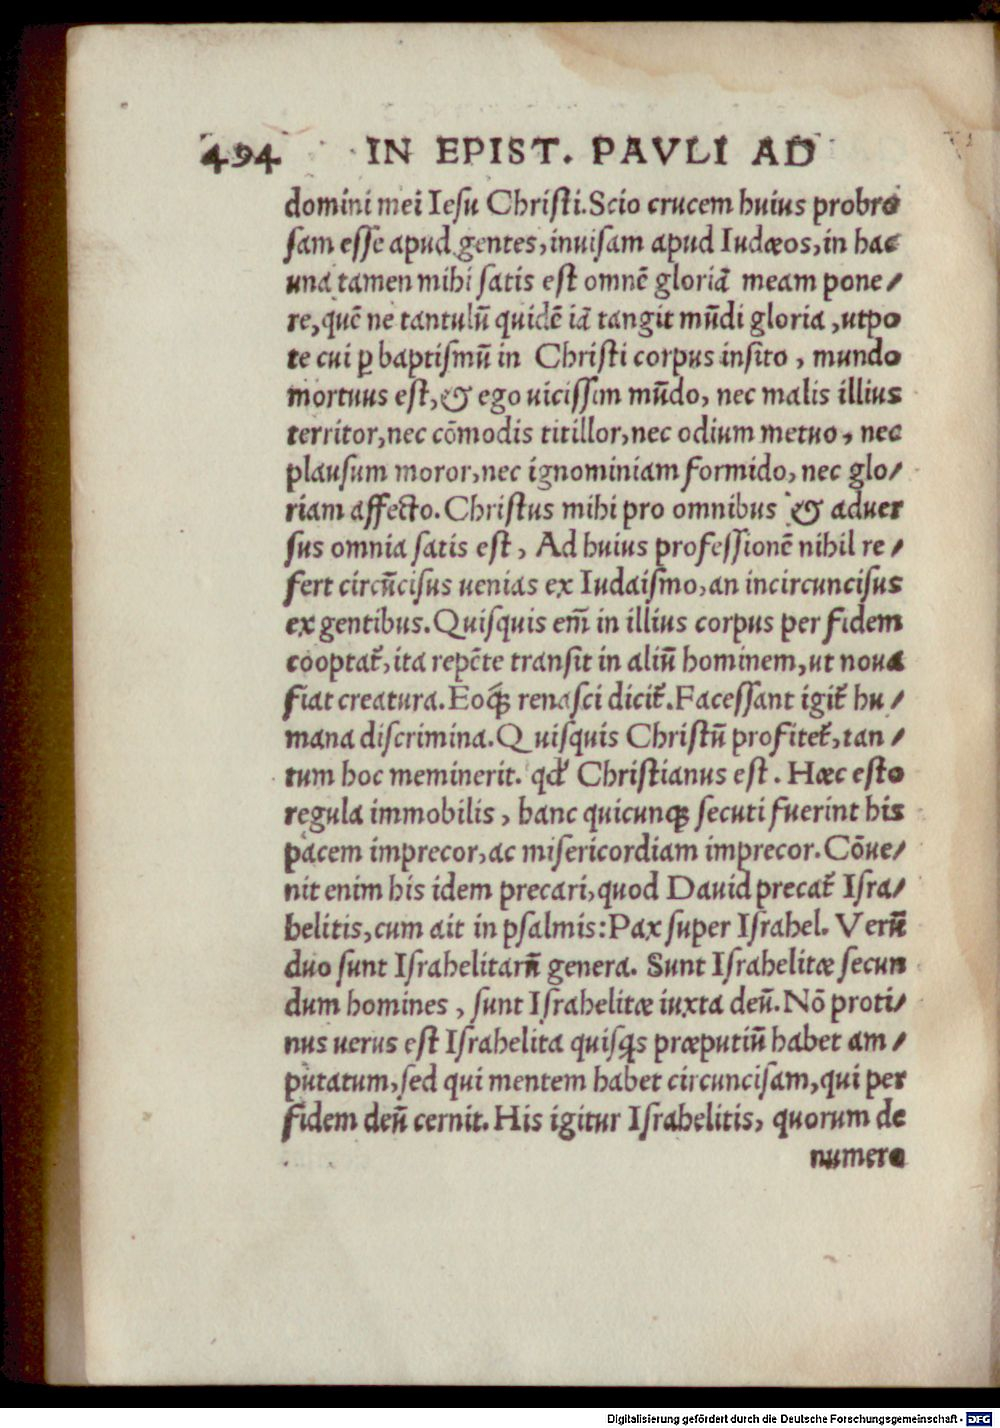 494 IN EPIST. PAVLI AD
domini mei Iesu Christi. Scio crucem huius probro
sam esse apud gentes, inuisam apud Iudæos, in hac
una tamen mihi satis est omnē gloriā meam pone/
re, quē ne tantulū quidē iā tangit mūdi gloria, utpo
te cui ꝑ baptismū in Christi corpus insito, mundo
mortuus est, & ego uicissim mūdo, nec malis illius
territor, nec cōmodis titillor, nec odium metuo, nec
plausum moror, nec ignominiam formido, nec glo/
riam affecto. Christus mihi pro omnibus & aduer
sus omnia satis est, Ad huius professionē nihil re/
fert circūcisus uenias ex Iudaismo, an incircuncisus
ex gentibus. Quisquis em̄ in illius corpus per fidem
cooptat᷑, ita repēte transit in aliū hominem, ut noua
fiat creatura. Eoq́ꝫ renasci dicit᷑. Facessant igit᷑ hu/
mana discrimina. Quisquis Christū profitet᷑, tan/
tum hoc meminerit. qđ Christianus est. Hæc esto
regula immobilis, hanc quicunqꝫ secuti fuerint his
pacem imprecor, ac misericordiam imprecor. Cōue/
nit enim his idem precari, quod Dauid precat᷑ Isra/
helitis, cum ait in psalmis: Pax super Israhel. Verū
duo sunt Israhelitarū genera. Sunt Israhelitæ secun
dum homines, sunt Israhelitæ iuxta deū. Nō proti/
nus uerus est Israhelita quisꝗs præputiū habet am/
putatum, sed qui mentem habet circuncisam, qui per
fidem deū cernit. His igitur Israhelitis, quorum de
numero
Digitalisierung gefördert durch die Deutsche Forschungsgemeinschaft - DFG